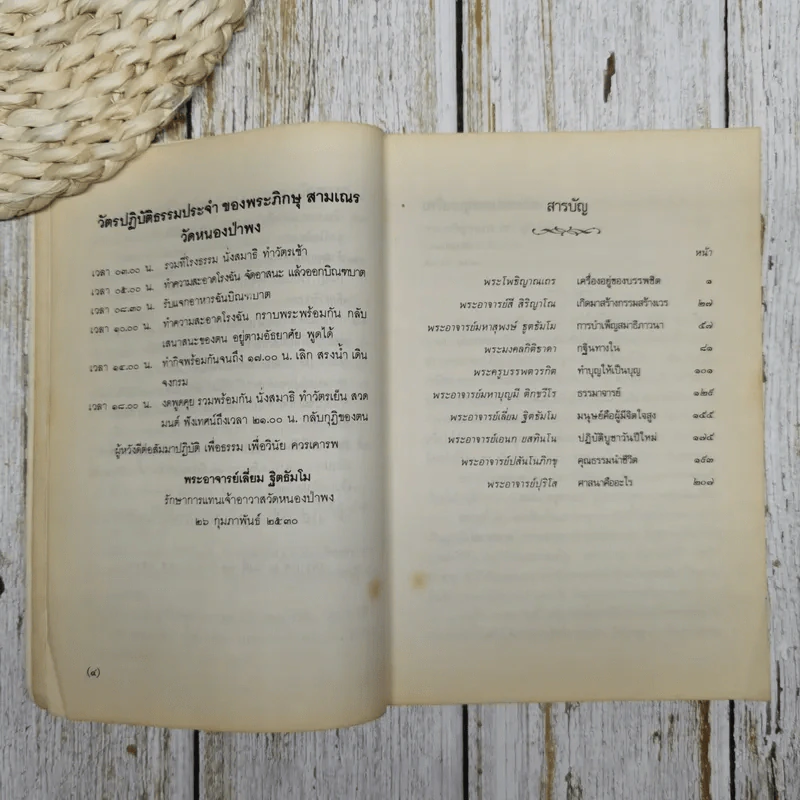 วัตรปฏิบัติธรรมประจำ ของพระภิกษุ สามเณร
วัดหนองป่าพง
เวลา ๐๓.๐๐ น. รวมที่โรงธรรม นั่งสมาธิ ทำวัตรเช้า
เวลา ๐๕.๐๐ น. ทำความสะอาดโรงฉัน จัดอาสนะ แล้วออกบิณฑบาต
เวลา ๐๘.๓๐ น. รับแจกอาหารฉันบิณฑบาต
เวลา ๑๐.๐๐ น. ทำความสะอาดโรงฉัน กราบพระพร้อมกัน กลับ
เสนาสนะของตน อยู่ตามอัธยาศัย พูดได้
เวลา ๑๔.๐๐ น. ทำกิจพร้อมกันจนถึง ๑๗.๐๐ น. เลิก สรงน้ำ เดิน
จงกรม
เวลา ๑๘.๐๐ น. งดพูดคุย รวมพร้อมกัน นั่งสมาธิ ทำวัตรเย็น สวด
มนต์ ฟังเทศน์ถึงเวลา ๒๑.๐๐ น. กลับกุฏิของตน
ผู้หวังดีต่อสัมมาปฏิบัติ เพื่อธรรม เพื่อวินัย ควรเคารพ
พระอาจารย์เลี่ยม ฐิตธัมโม
รักษาการแทนเจ้าอาวาสวัดหนองป่าพง
๒๖ กุมภาพันธ์ ๒๕๓๐
(๔)
สารบัญ
หน้า
พระโพธิญาณเถร เครื่องอยู่ของบรรพชิต ๑
พระอาจารย์สี สิริญาโณ เกิดมาสร้างกรรมสร้างเวร ๒๗
พระอาจารย์มหาสุพงษ์ ฐตธัมโม การบำเพ็ญสมาธิภาวนา ๕๗
พระมงคลกิตติธาดา กฐินทางใน ๘๑
พระครูบรรพตวรกิต ทำบุญให้เป็นบุญ ๑๐๑
พระอาจารย์มหาบุญมี ติกขวีโร ธรรมาจารย์ ๑๒๕
พระอาจารย์เลี่ยม ฐิตธัมโม มนุษย์คือผู้มีจิตใจสูง ๑๕๕
พระอาจารย์เอนก ยสทินโน ปฏิบัติบูชาวันปีใหม่ ๑๗๕
พระอาจารย์ปสันโนภิกขุ คุณธรรมนำชีวิต ๑๙๓
พระอาจารย์ปุริโส ศาสนาคืออะไร ๒๐๗